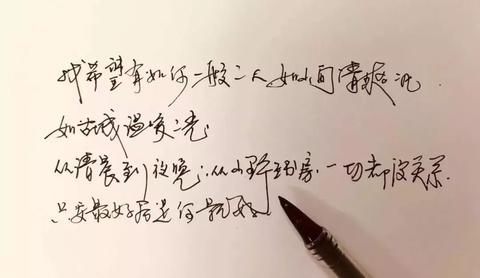 我希望有如你一般之人如山间清爽之风
如古城温暖之光
从清晨到夜晚.从山野到书房.一切都没关系.
只要最好后是你就好